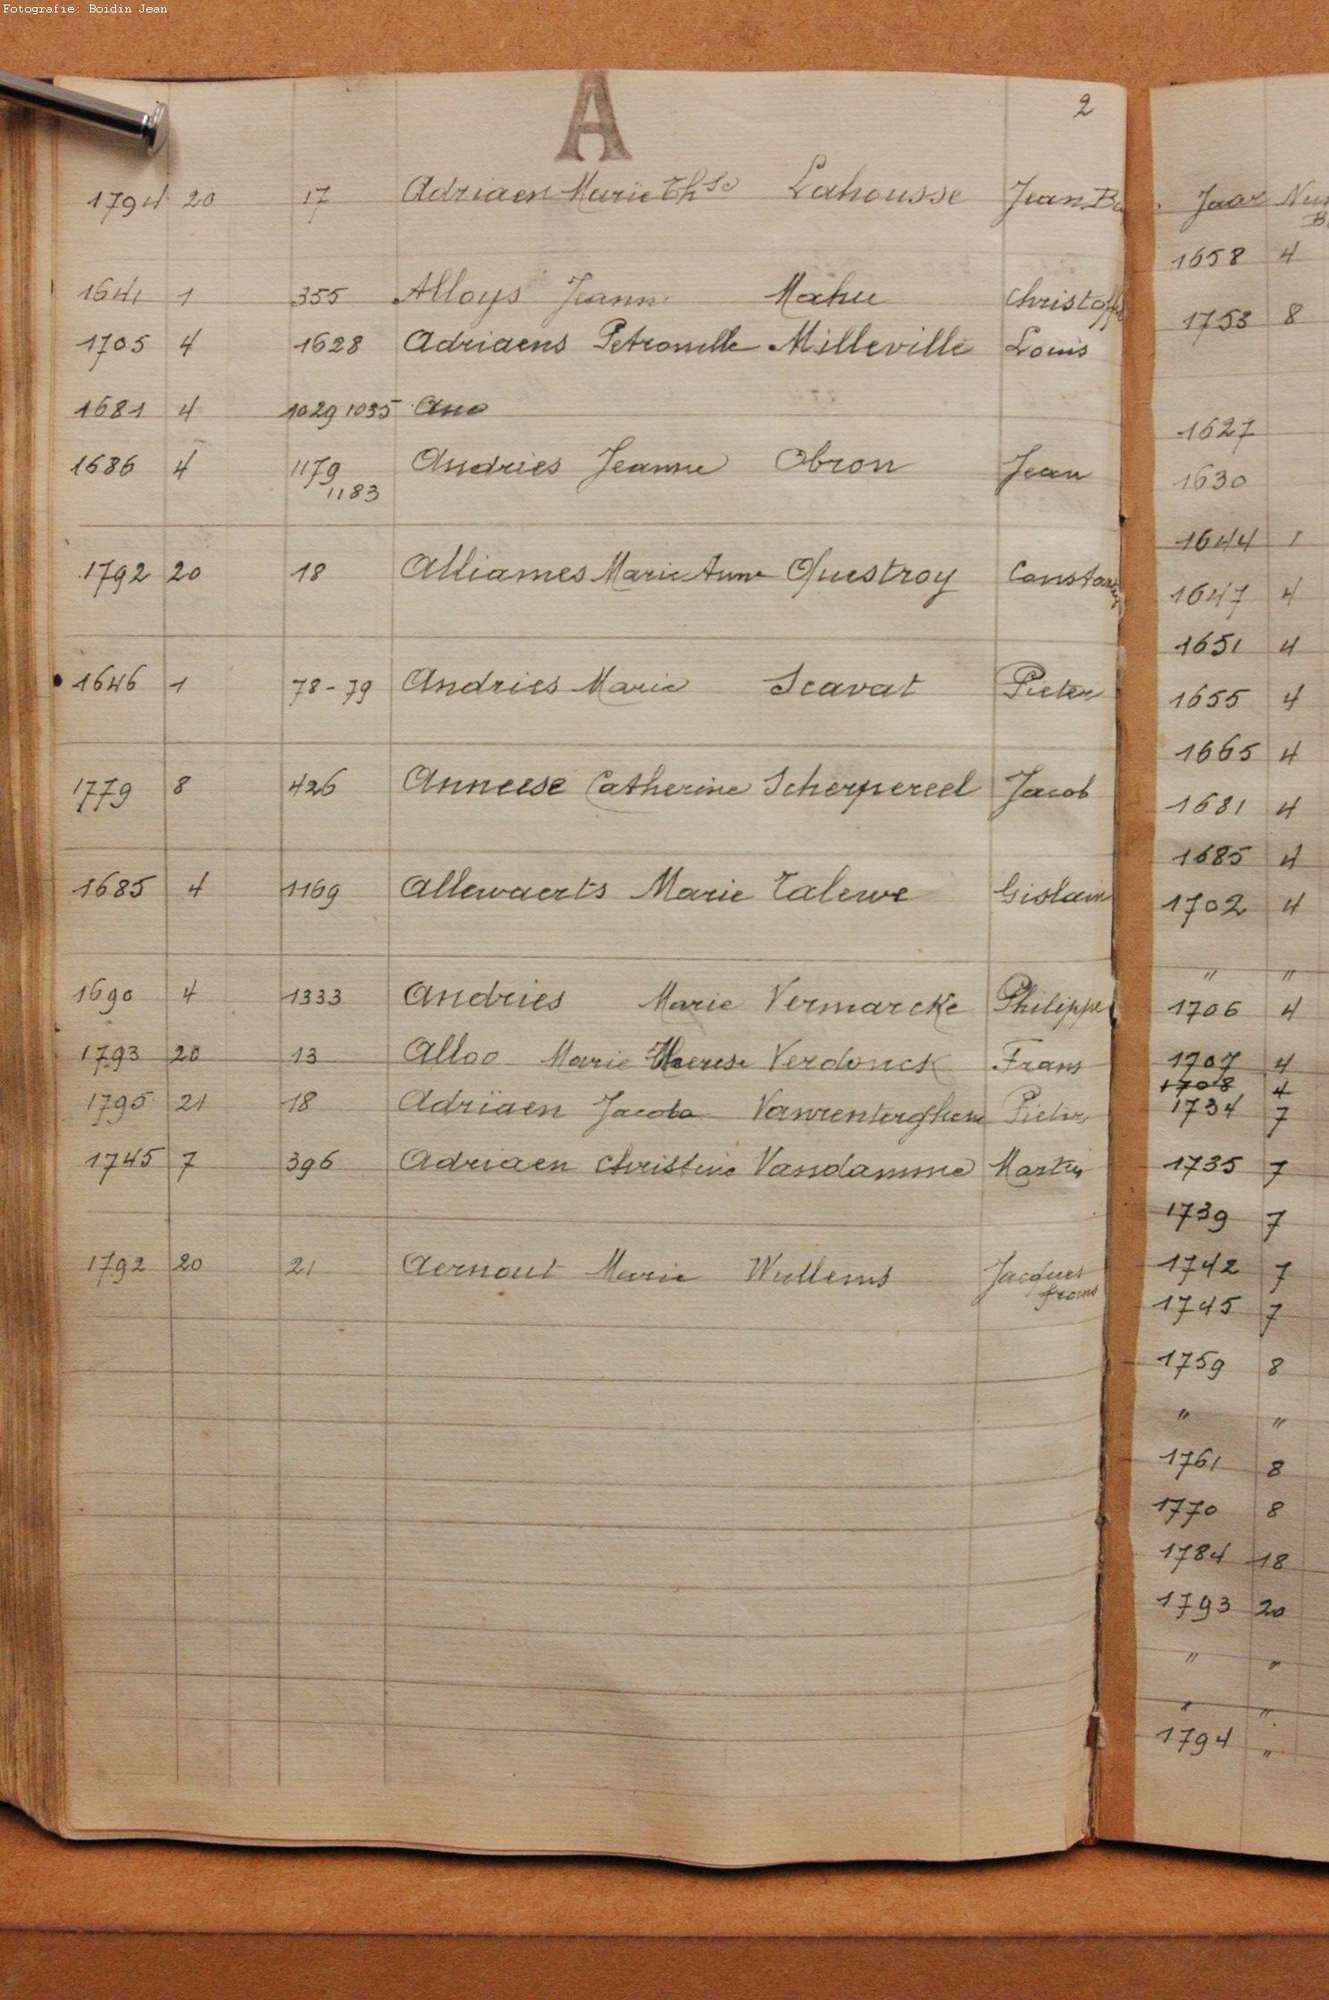 Fotografie: Boidin Jean
A
2
1794 20 17 Adriaen Marie Th Se Lahousse Jean
1641 1 355 Alloys Jeanne Mahu Christoffe
1705 4 1628 Adriaens Petronelle Milleville Louis
1681 4 1029 1035
1686 4 1179 Andries Jeanne Obron Jean
1183
1792 20 18 Alliames Marie Anne Questroy
1646 1 78-79 Andries Marie Scavat Pieter
1779 8 426 Anneese Catherine Scherpereel Jacob
1685 4 1169 Allewaerts Marie Talewe Gislain
1690 4 1333 Andries Marie Vermarcke Philippe
1793 20 13 Alloo Marie Therese Verdonck Frans
1795 21 18 Adriaen Jacoba Vanrenterghem Pieter
1745 7 396 Adriaen Christine Vandamme Martin
1792 20 21 Aernout Marie Wullems Jacques
frans
Jaar
1658 4
1753 8
1627
1630
1644 1
1647 4
1651 4
1655 4
1665 4
1681 4
1685 4
1702 4
" "
1706 4
1707 4
1708 4
1734 7
1735 7
1739 7
1742 7
1745 7
1759 8
" "
1761 8
1770 8
1784 18
1793 20
" "
" "
1794 "